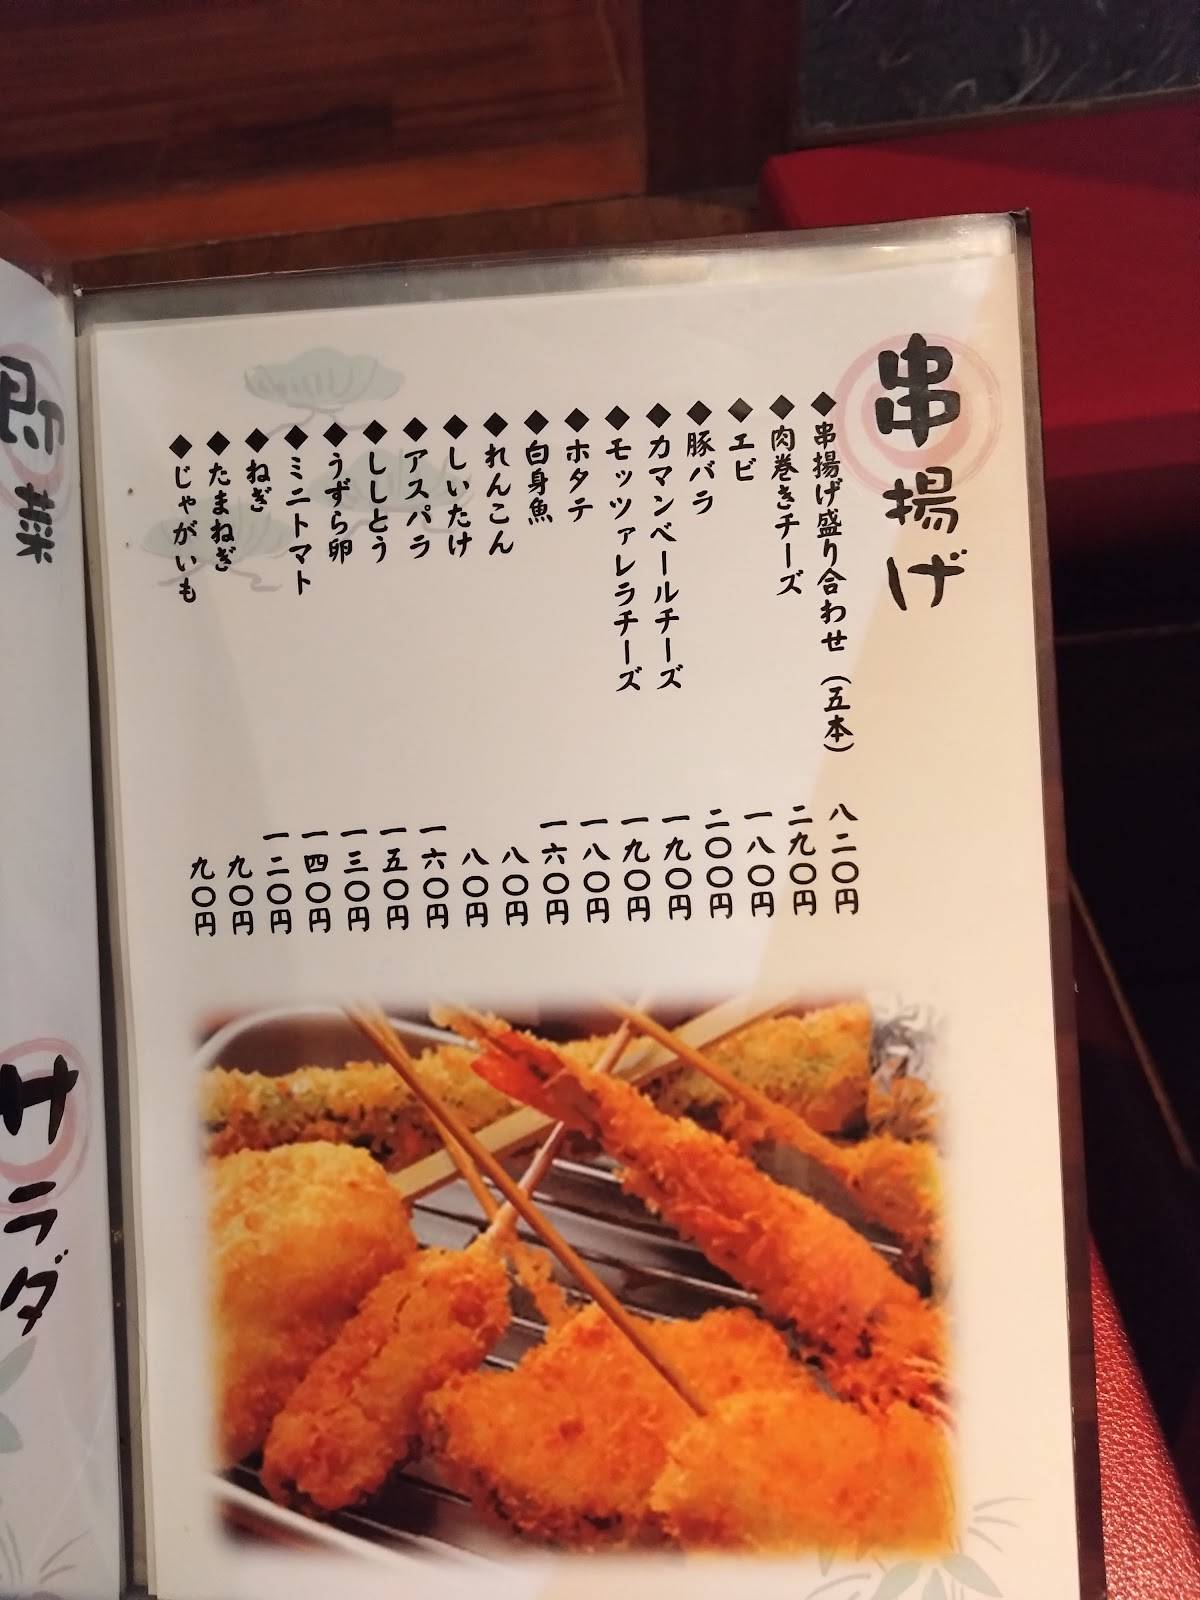 串揚げ
◆串揚げ盛り合わせ（五本） 八二〇円
◆肉巻きチーズ 二九〇円
◆エビ 一八〇円
◆豚バラ 二〇〇円
◆カマンベールチーズ 一九〇円
◆モッツァレラチーズ 一九〇円
◆ホタテ 一八〇円
◆白身魚 一六〇円
◆れんこん 八〇円
◆しいたけ 八〇円
◆アスパラ 一六〇円
◆ししとう 一五〇円
◆うずら卵 一三〇円
◆ミニトマト 一四〇円
◆ねぎ 一二〇円
◆たまねぎ 九〇円
◆じゃがいも 九〇円
即菜
サラダ